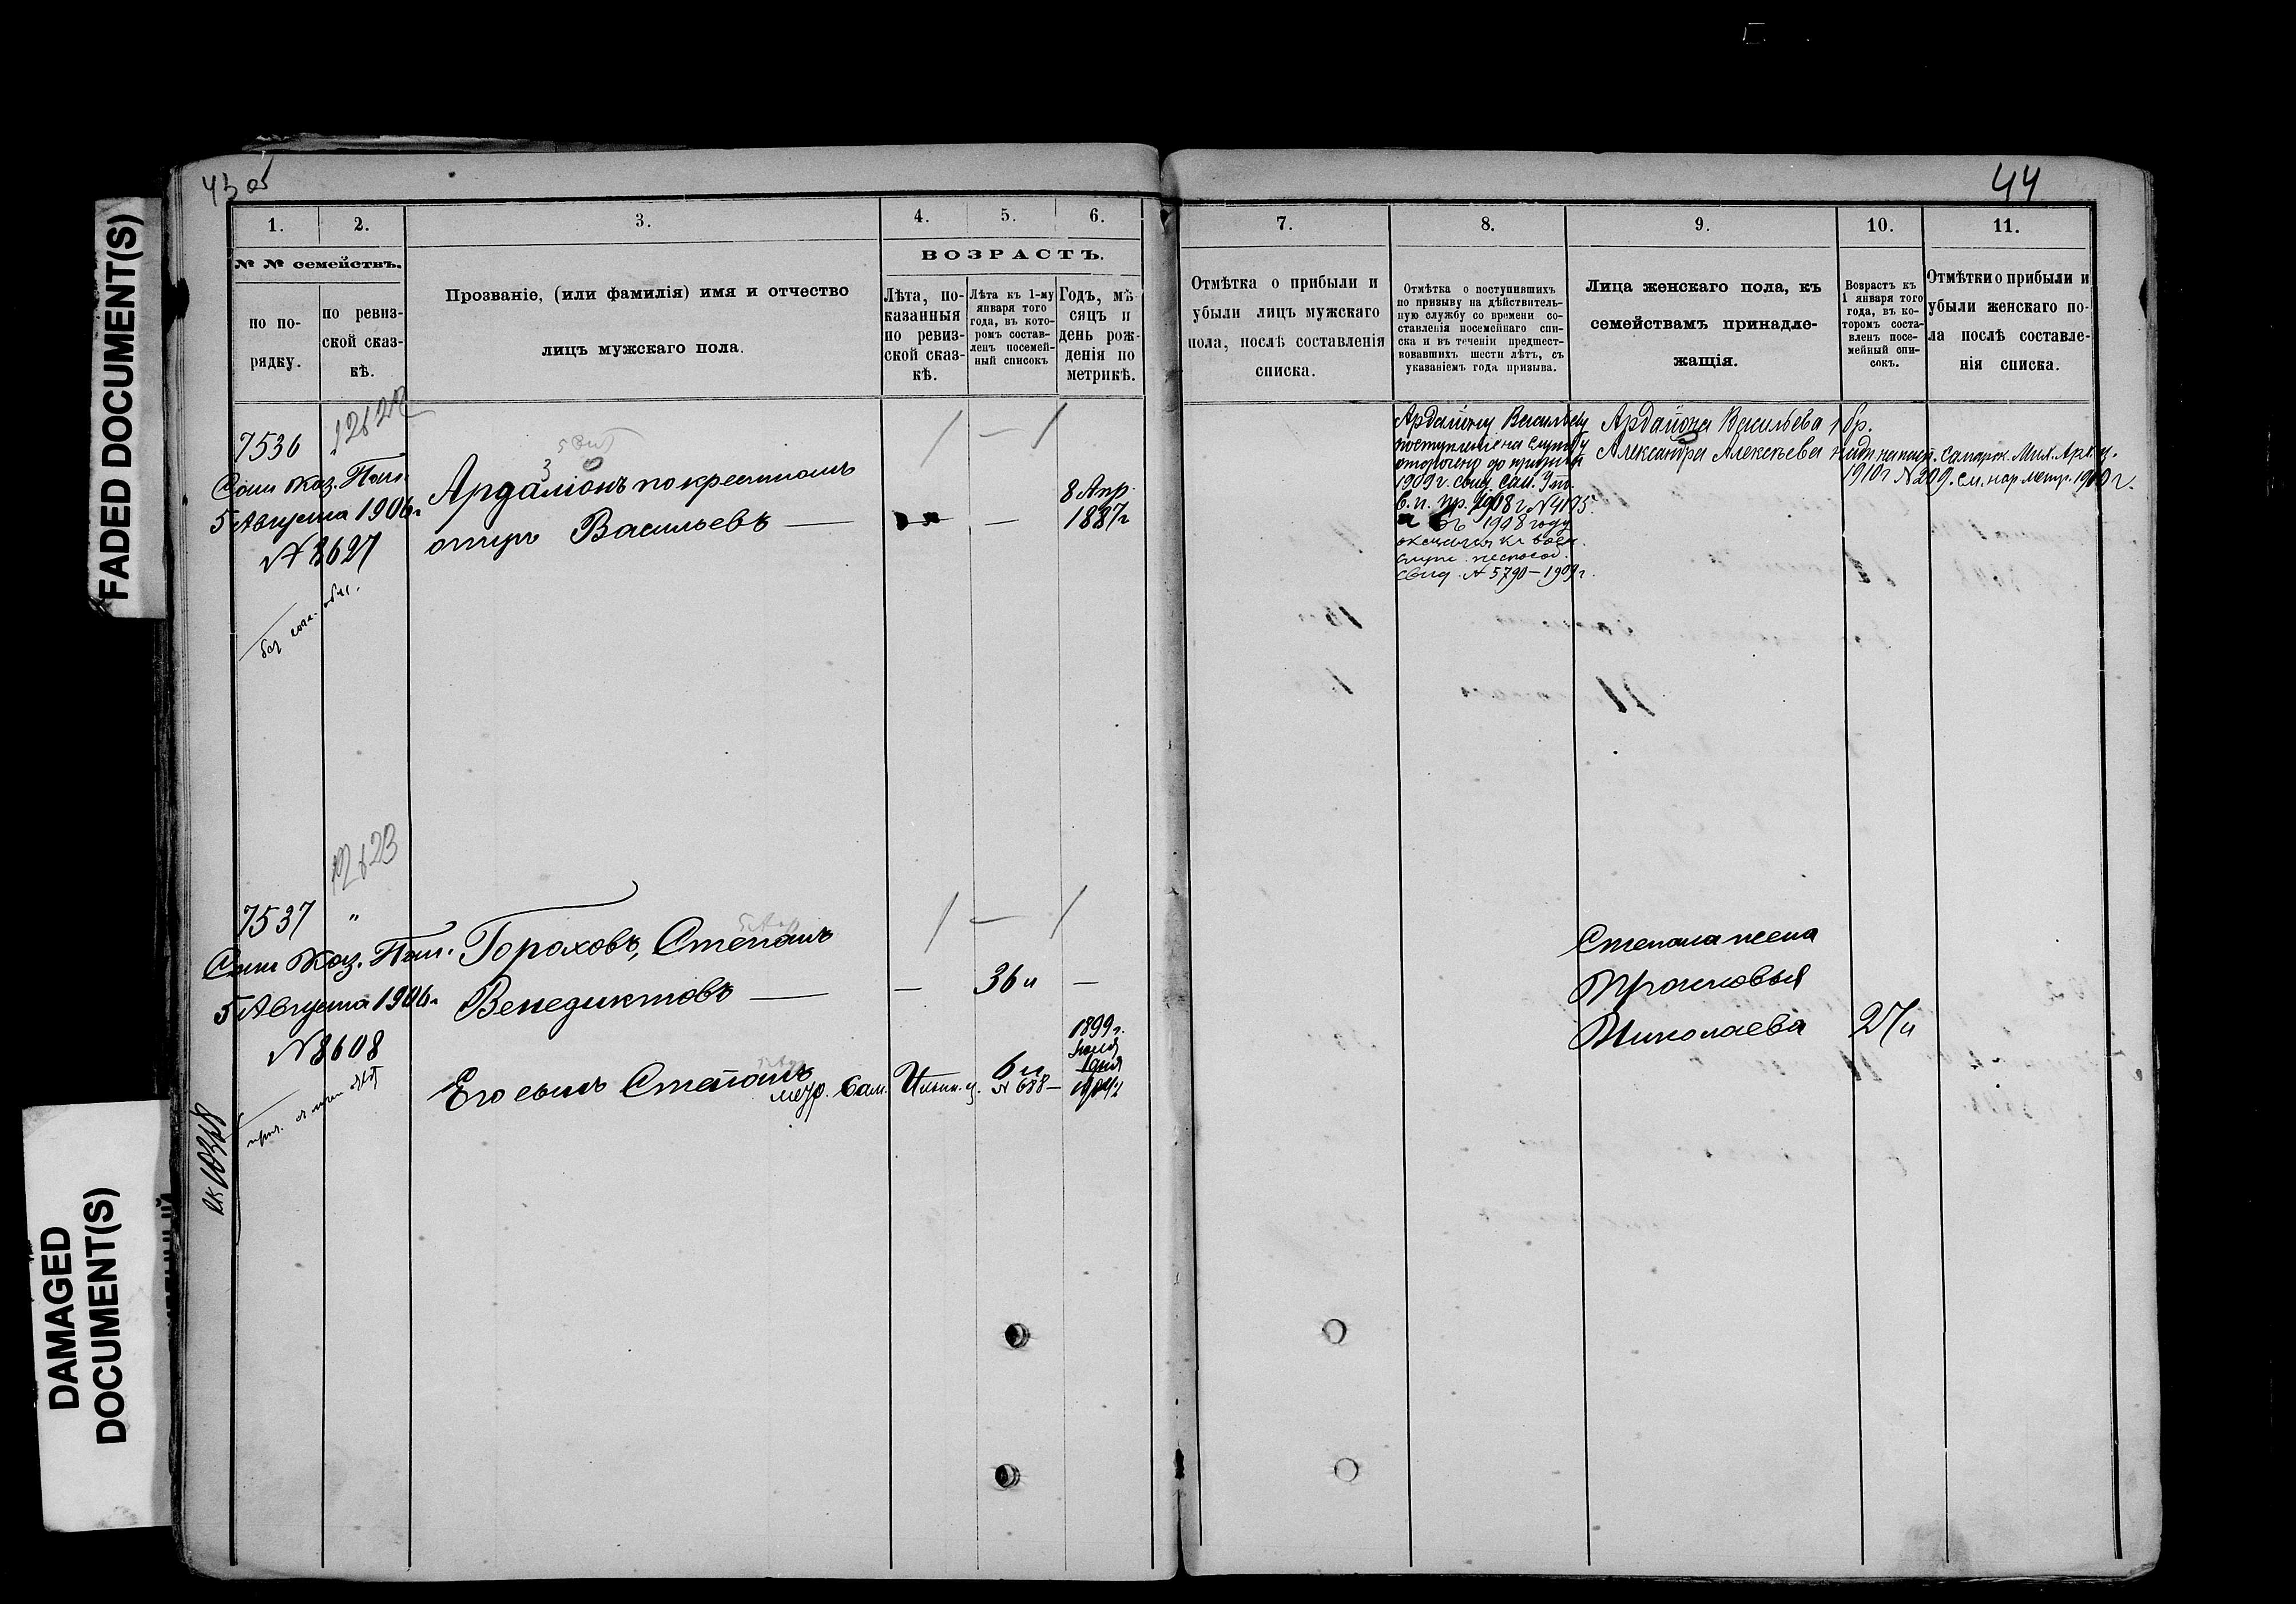 FADED DOCUMENT(S)
DAMAGED
DOCUMENT(S)
43 об
44
1.
2.
3.
4.
5.
6.
№ № семействъ.
ВОЗРАСТЪ.
по по-
рядку.
по ревиз-
ской сказ-
кѣ.
Прозваніе, (или фамилія) имя и отчество
лицъ мужскаго пола.
Лѣта, по-
казанныя
по ревиз-
ской сказ-
кѣ.
Лѣта къ 1-му
января того
года, въ кото-
ромъ состав-
ленъ посемей-
ный списокъ
Годъ, мѣ-
сяцъ и
день рож-
денія по
метрикѣ.
7.
8.
9.
10.
11.
Отмѣтка о прибыли и
убыли лицъ мужскаго
пола, послѣ составленія
списка.
Отмѣтка о поступившихъ
по призыву на дѣйствитель-
ную службу со времени со-
ставленія посемейнаго спи-
ска и въ теченіи предшест-
вовавшихъ шести лѣтъ, съ
указаніемъ года призыва.
Лица женскаго пола, къ
семействамъ принадле-
жащія.
Возрастъ къ
1 января того
года, въ ко-
торомъ соста-
вленъ посе-
мейный спи-
сокъ.
Отмѣтки о прибыли и
убыли женскаго по-
ла послѣ составле-
нія списка.
7536
Каз. Пал.
5 Августа 1906 г
№ 8627
Ардаліонъ по крестному
отцу Васильевъ —
8 Апр.
1887 г
Ардаліону Васильеву
поступленіе на службу
отсрочено до призыва
1909 г. свид. Сам.
В. п. пр. 1908 г. № 4175.
1908 году
къ воен.
неспособ.
свид. № 5790 – 1909 г.
Ардаліона Васильева 1 бр.
Александра Алексѣева
1910 г № 209. см. нар метр. 1910 г.
12623
7537 "
Каз. Пал.
5 Августа 1906 г
№ 8608
Гороховъ, Степанъ
Венедиктовъ —
— 36 л —
Его сынъ Степанъ
метр. Сам. Ильин. ц. № 688 —
6 л
1899 г.
Степана жена
Прасковья
Николаева 27 л